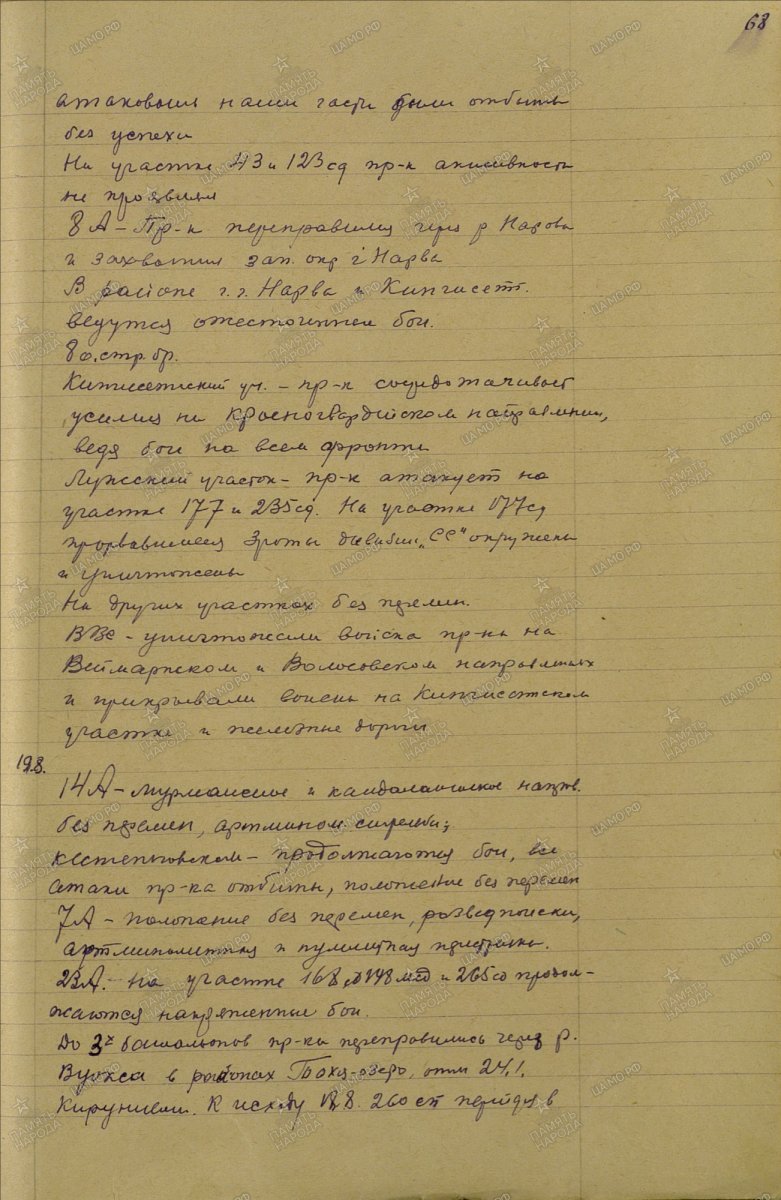 68
атаковавшие наши части были отбиты
без успеха
На участке 43 и 123 сд пр-к активности
не проявлял
8А – Пр-к переправился через р Нарова
и захватил зап. окр г Нарва
В районе г.г. Нарва и Кингисепп.
ведутся ожесточенные бои.
8 о.стр.бр.
Кингисепский уч. – пр-к сосредотачивает
усилия на Красногвардейском направлении,
ведя бои на всем фронте
Лужский участок – пр-к атакует на
участке 177 и 235 сд. На участке 177 сд
прорвавшиеся 3 роты дивизии „СС“ окружены
и уничтожены
На других участках без перемен.
ВВС – уничтожали войска пр-ка на
Веймарнском и Волосовском направлениях
и прикрывали войска на Кингисепском
участке и железные дороги
19.8.
14А – Мурманское и кандалакшское напр.
без перемен, артмином. стрельба;
кестеньгском – продолжаются бои, все
атаки пр-ка отбиты, положение без перемен
7А – положение без перемен, разведпоиски,
артминометная и пулеметная перестрелка.
23А. На участке 168, 198 мсд и 265 сд продол-
жаются напряженные бои.
До 3х батальонов пр-ка переправились через р.
Вуокса в районах озеро, отм 24,1,
К исходу 18.8. 260 сп перейдя в